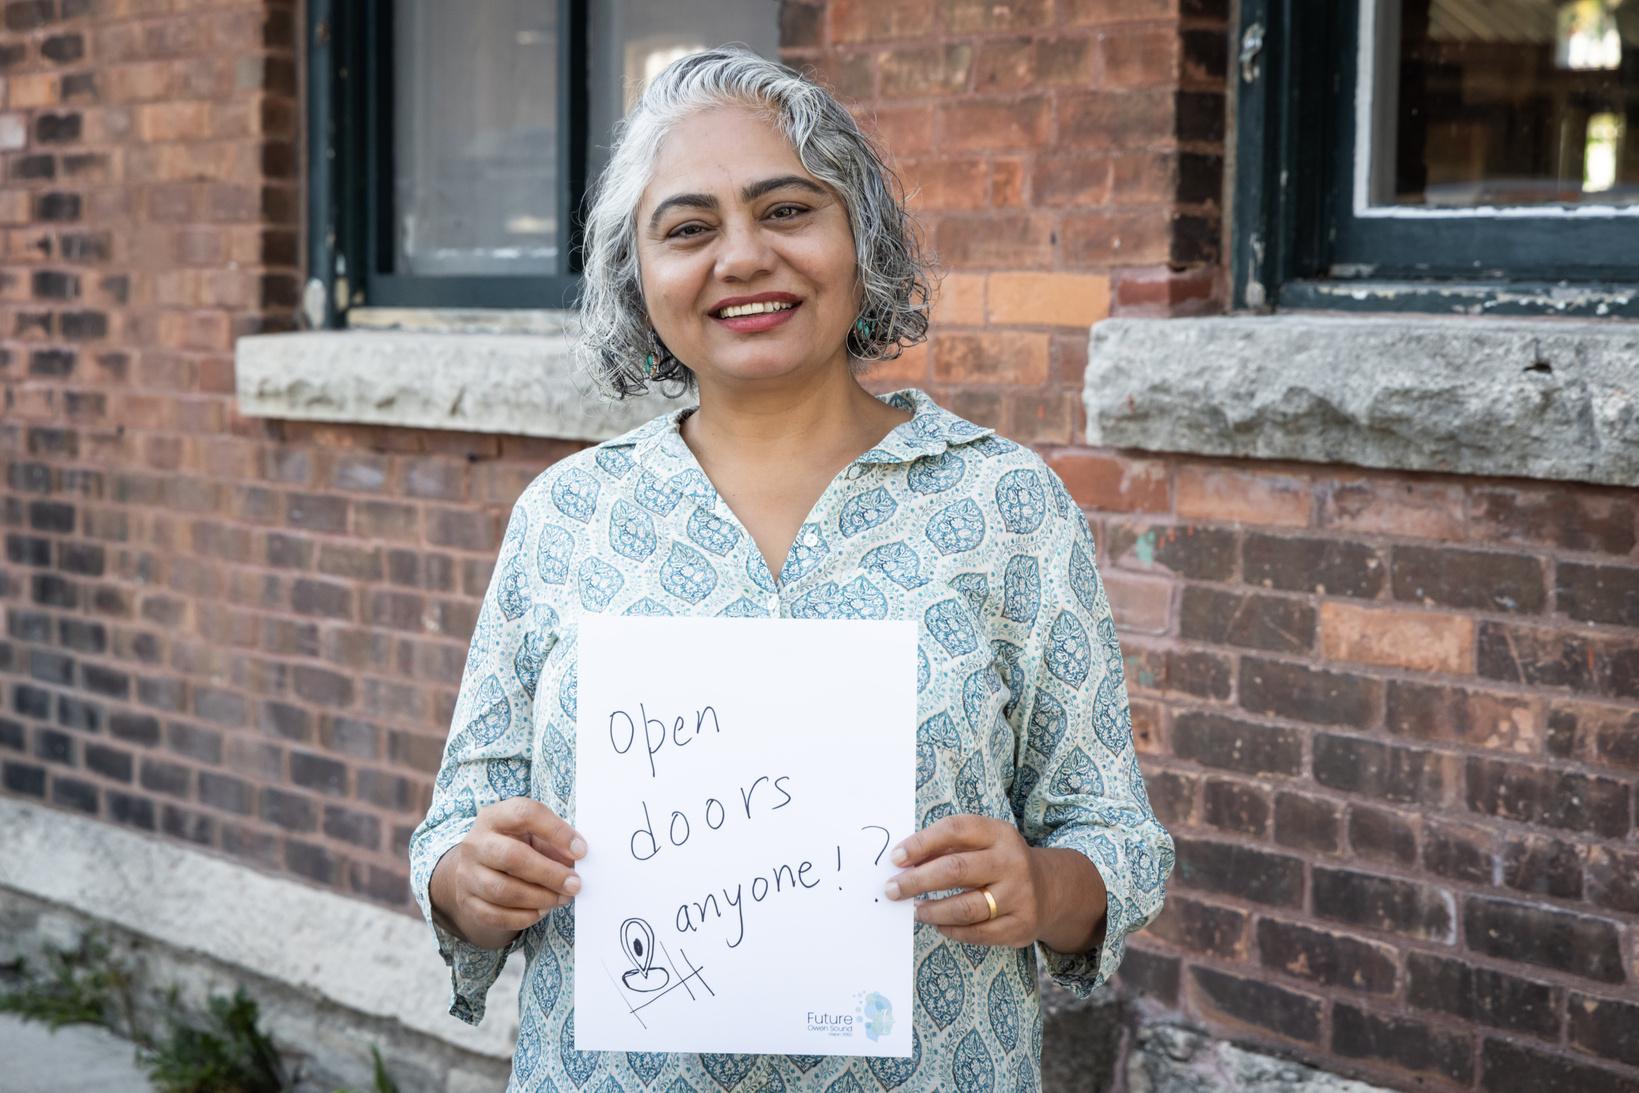 Open
doors
anyone!?
Future
Owen Sound